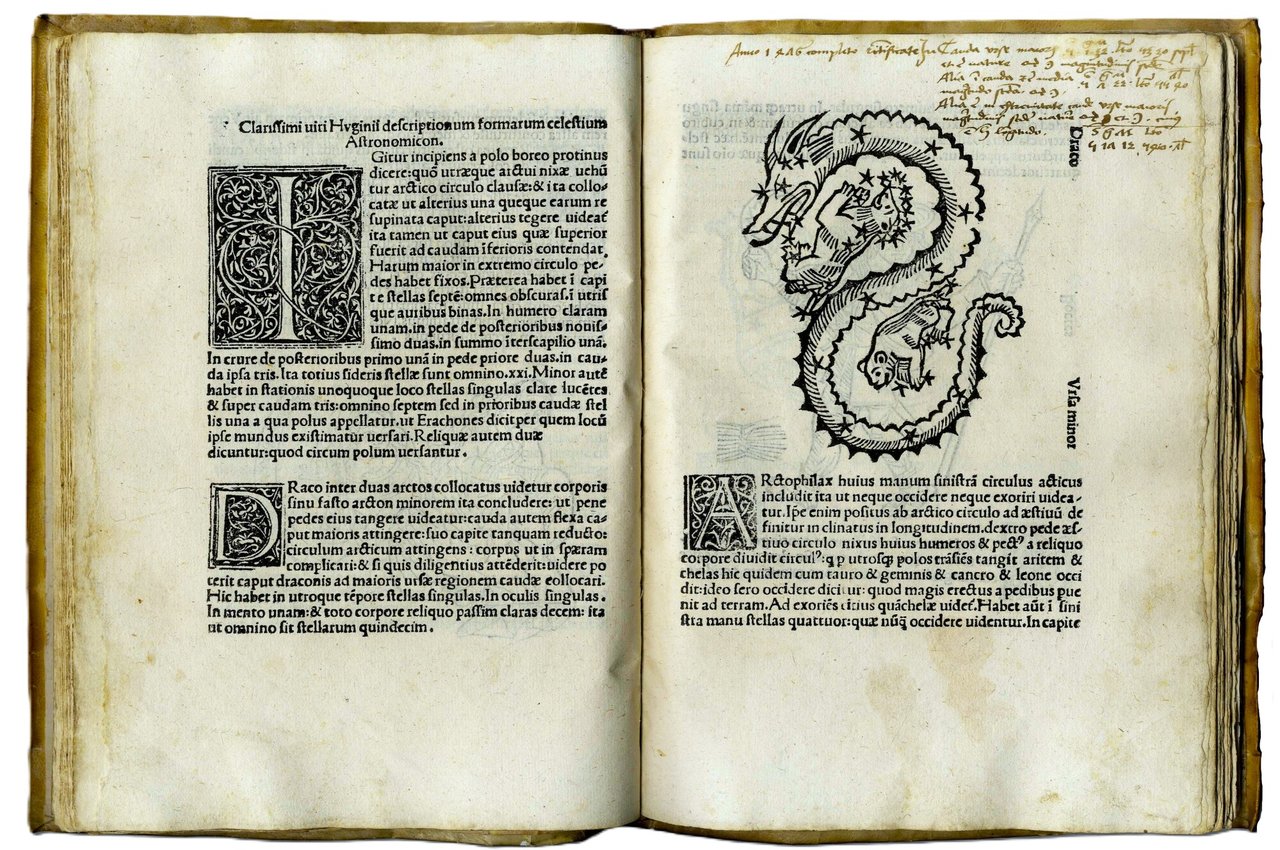 Clarissimi uiri Hyginii descriptionum formarum celestium
Astronomicon.
IGitur incipiens a polo boreo protinus
dicere:quō utræque arctui nixæ uehū
tur arctico circulo clausæ:& ita collo-
catæ ut alterius una queque earum re
supinata caput:alterius tegere uideat̄
ita tamen ut caput eius quæ superior
fuerit ad caudam īferioris contendat.
Harum maior in extremo circulo pe-
des habet fixos.Præterea habet ī capi
te stellas septē:omnes obscuras.ī utris
que auribus binas.In humero claram
unam.in pede de posterioribus nouis-
simo duas.in summo īterscapilio unā.
In crure de posterioribus primo unā in pede priore duas.in cau-
da ipsa tris.Ita totius sideris stellæ sunt omnino.xxi.Minor autē
habet in stationis unoquoque loco stellas singulas clare lucētes
& super caudam tris:omnino septem sed in prioribus caudæ stel
lis una a qua polus appellatur.ut Erachones dicit per quem locū
ipse mundus existimatur uersari.Reliquæ autem duæ
dicuntur:quod circum polum uersantur.
DRaco inter duas arctos collocatus uidetur corporis
sinu fasto arcton minorem ita concludere: ut pene
pedes eius tangere uideatur:cauda autem flexa ca-
put maioris attingere:suo capite tanquam reducto:
circulum arcticum attingens : corpus ut in spæram
complicari:& si quis diligentius attēderit:uidere po
terit caput draconis ad maioris ursæ regionem caudæ eollocari.
Hic habet in utroque tēpore stellas singulas.In oculis singulas.
In mento unam:& toto corpore reliquo passim claras decem: ita
ut omnino sit stellarum quindecim.
Cauda urse maioris
Draco
Vrsa minor
ARctophilax huius manum sinistrā circulus acticus
includit ita ut neque occidere neque exoriri uidea-
tur.Ipe enim positus ab arctico circulo ad æstiuū de
finitur in clinatus in longitudinem.dextro pede æs-
tiuo circulo nixus huius humeros & pectꝰ a reliquo
corpore diuidit circulꝰ:q p utrosq; polos trāsiēs tangit aritem &
chelas hic quidem cum tauro & geminis & cancro & leone occi
dit:ideo sero occidere dicitur: quod magis erectus a pedibus pue
nit ad terram. Ad exoriēs citius quā chelæ uidet̄.Habet aūt ī sini
stra manu stellas quattuor:quæ nūq̄ occidere uidentur.In capite